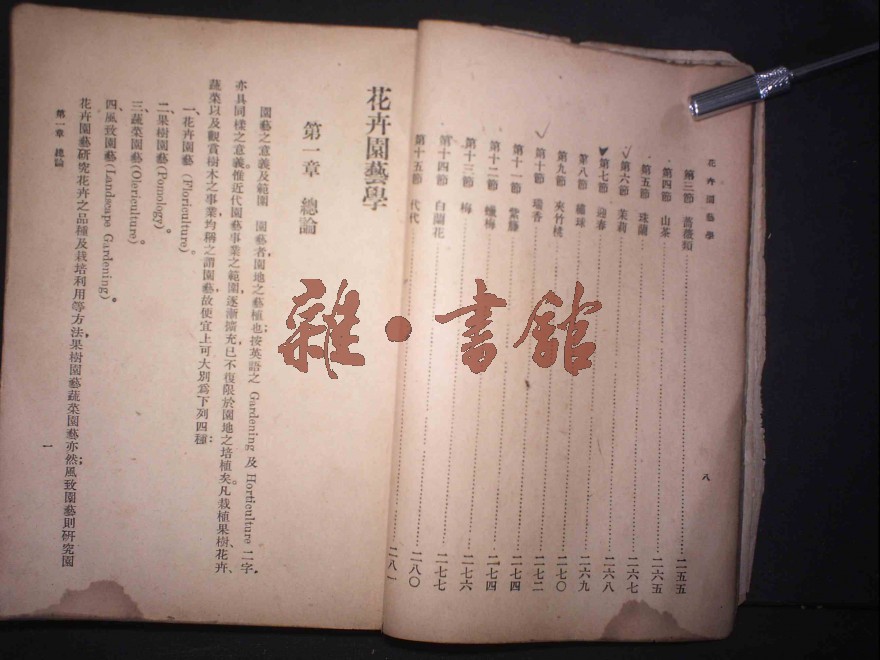 花卉園藝學
第三節 薔薇類 二五五
第四節 山茶 二六五
第五節 珠蘭 二六七
第六節 茉莉 二六八
第七節 迎春 二六九
第八節 繡球 二七〇
第九節 夾竹桃 二七二
第十節 瑞香 二七四
第十一節 紫藤 二七四
第十二節 蠟梅 二七六
第十三節 梅 二七七
第十四節 白蘭花 二八〇
第十五節 代代 二八一
八
花卉園藝學
第一章 總論
園藝之意義及範圍 園藝者,園地之藝植也;按英語之 Gardening 及 Horticulture 二字,
亦具同樣之意義。惟近代園藝事業之範圍,逐漸擴充,已不復限於園地之培植矣。凡栽植果樹、花卉、
蔬菜以及觀賞樹木之事業,均稱之謂園藝,故便宜上可大別爲下列四種:
一、花卉園藝 (Floriculture)。
二、果樹園藝(Pomology)。
三、蔬菜園藝(Olericulture)。
四、風致園藝(Landscape Gardening)。
花卉園藝研究花卉之品種及栽培利用等方法,果樹園藝蔬菜園藝亦然;風致園藝則研究園
第一章 總論
一
雜·書館